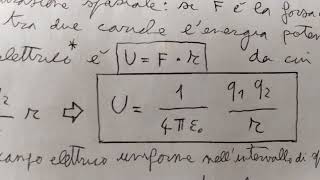 spaziale: se F è la forza
tra due cariche l'energia poten
elettrico* è U = F · r da cui
r ⇒ U = 1/4πε₀ q₁ q₂/r
campo elettrico uniforme nell'intervallo di